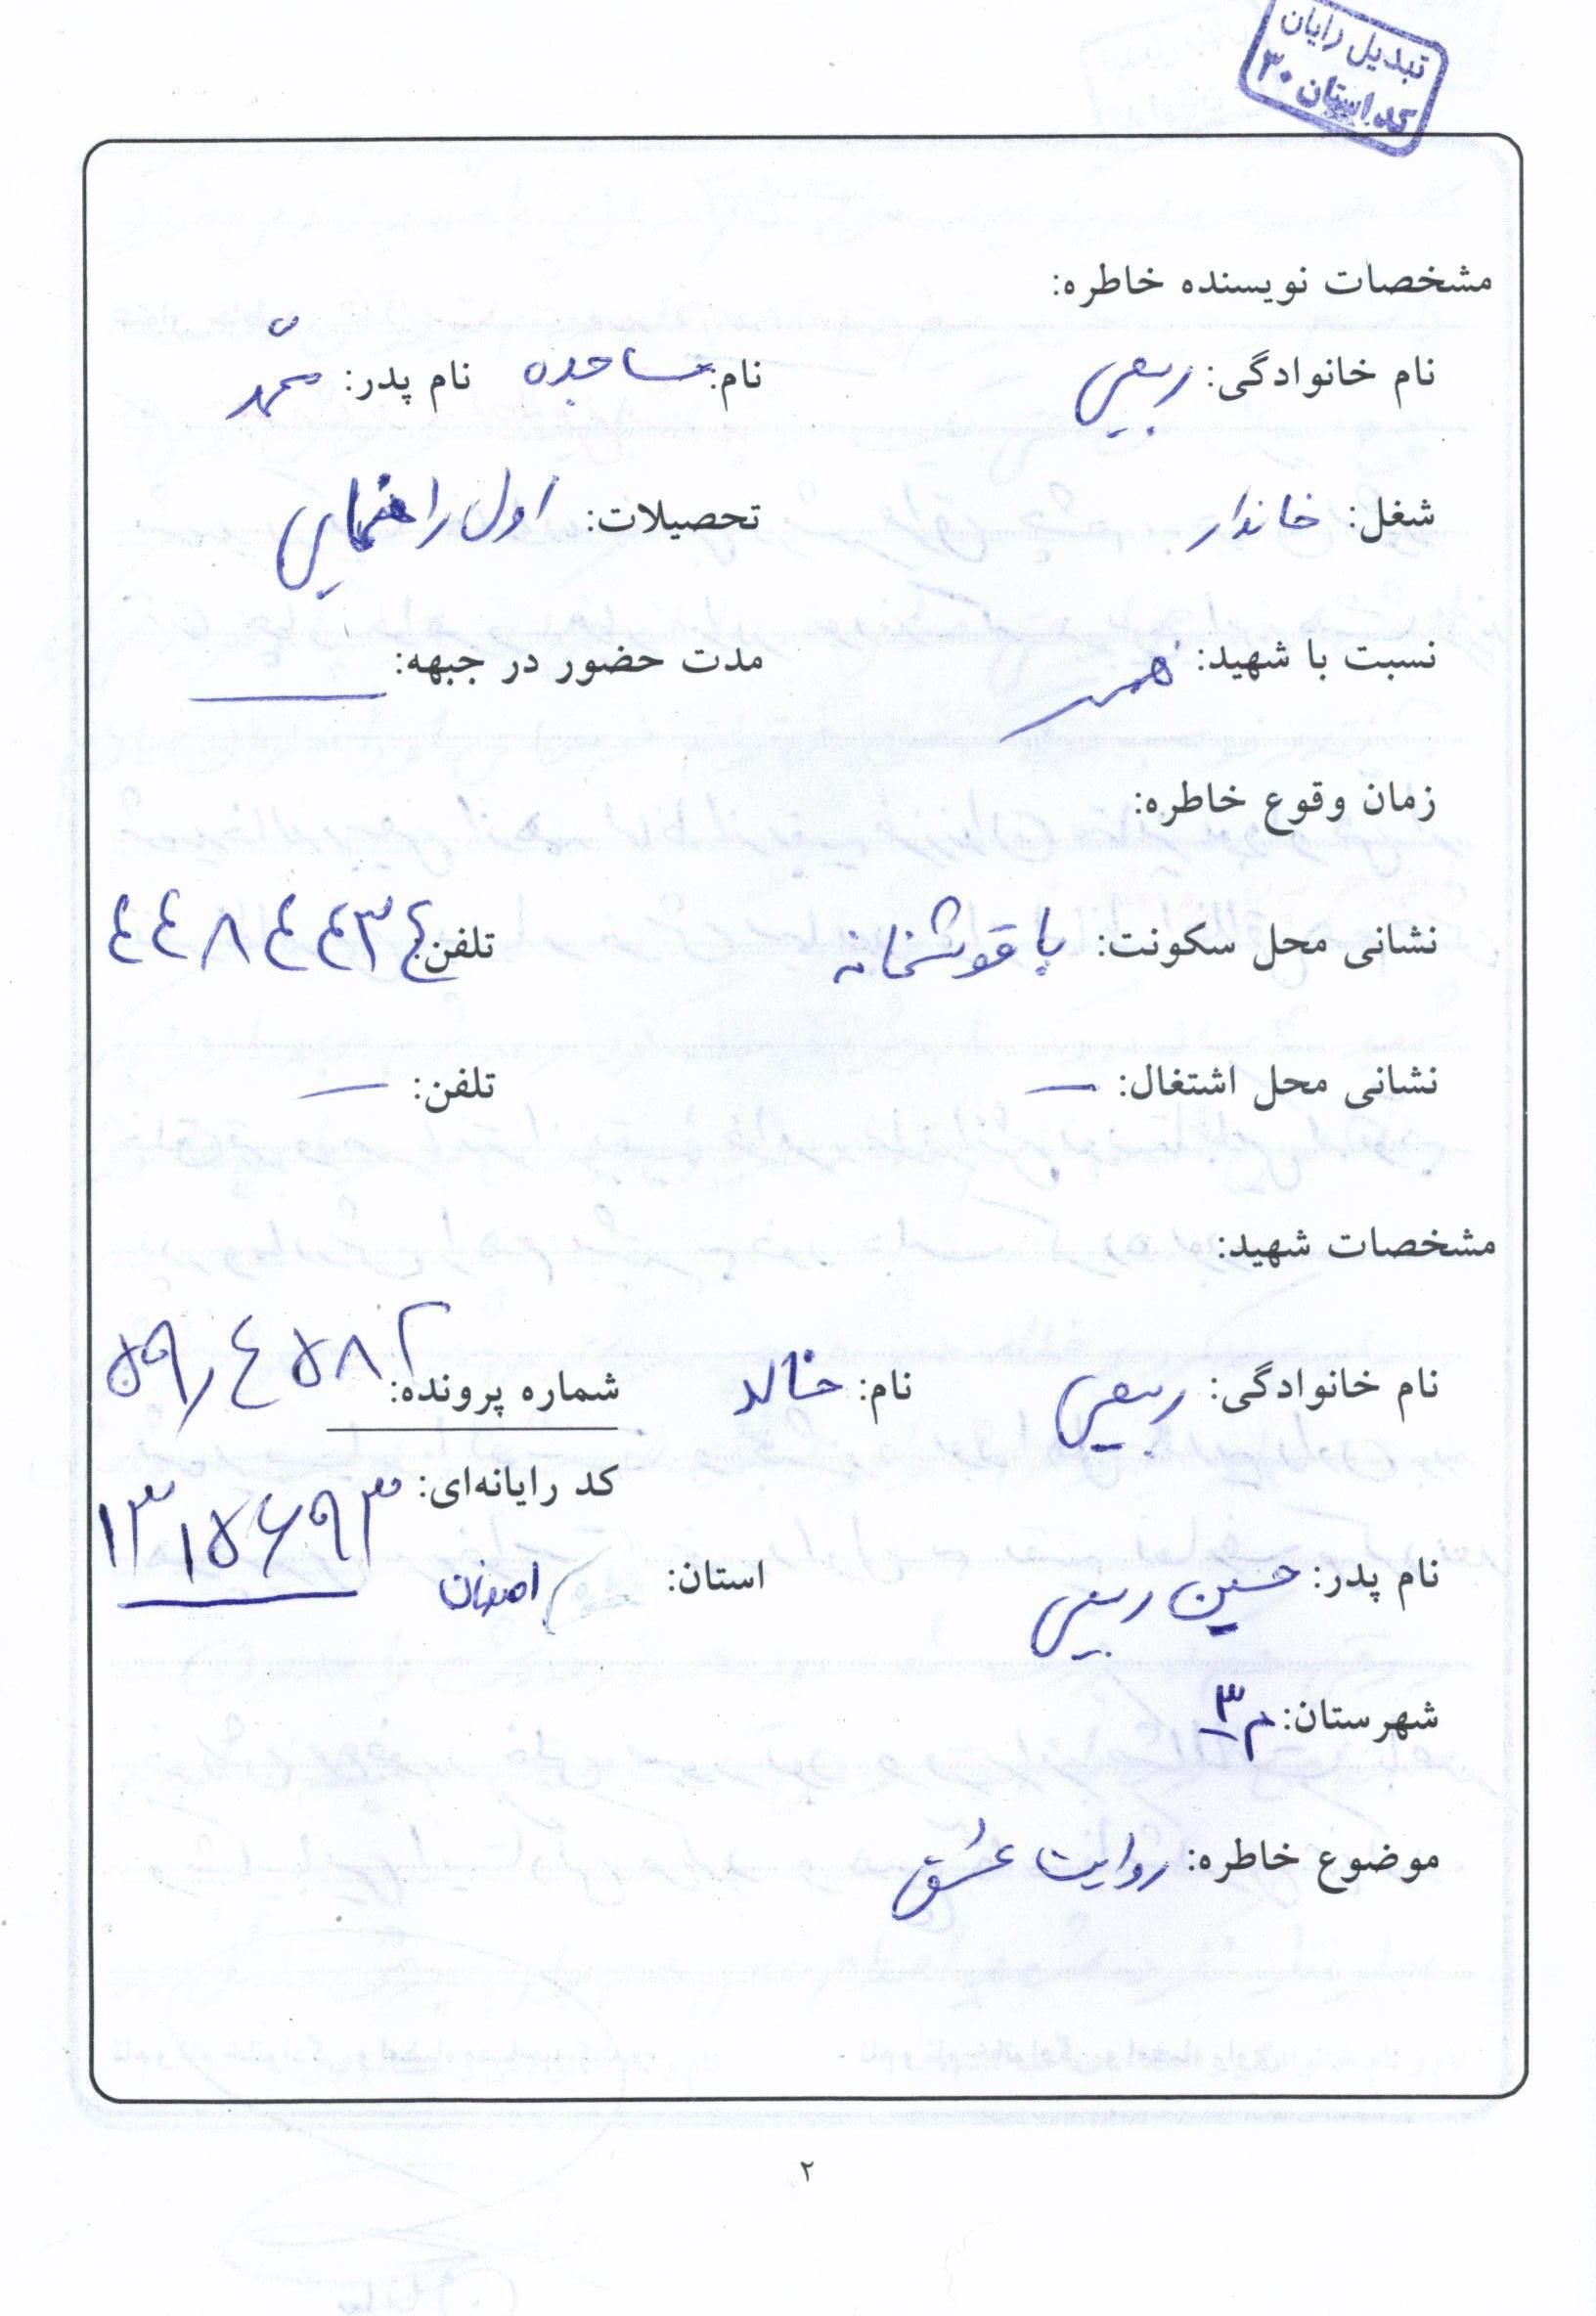 تبدیل رایان
کد استان ۳۰
مشخصات نویسنده خاطره:
نام خانوادگی: ربیعی نام: ساجده نام پدر: محمّد
شغل: خاندار تحصیلات: اول راهنمایی
نسبت با شهید: همسر مدت حضور در جبهه: ــــ
زمان وقوع خاطره:
نشانی محل سکونت: باقوشخانه تلفن: ٤٤٨٤٤٣٤
نشانی محل اشتغال: ــ تلفن: ــ
مشخصات شهید:
نام خانوادگی: ربیعی نام: خالد شماره پرونده: ۵۹/٤۵۸۲
کد رایانه‌ای: ۱۳۱۵۶۹۳
نام پدر: حسین ربیعی استان: اصفهان
شهرستان: م۳
موضوع خاطره: روایت عشق
۲